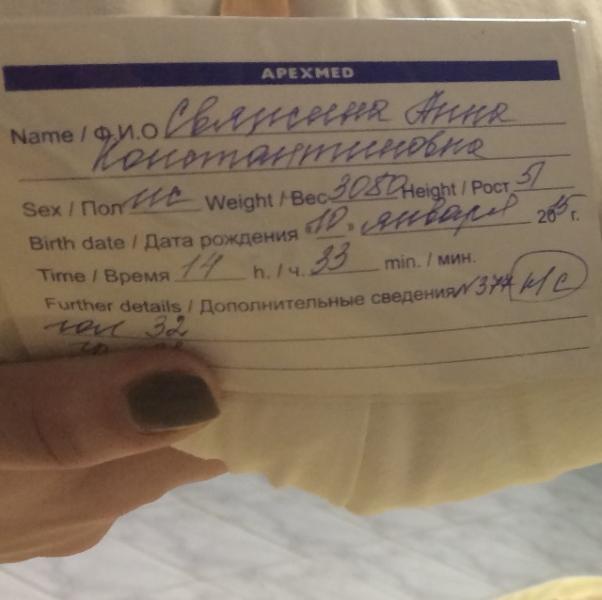 APEXMED
Name / Ф.И.О Свяжина Анна
Константиновна
Sex / Пол жс Weight / Вес 3080 Height / Рост 51
Birth date / Дата рождения «10» января 2015 г.
Time / Время 14 h. / ч. 33 min. / мин.
Further details / Дополнительные сведения N 377 к/с
гол 32